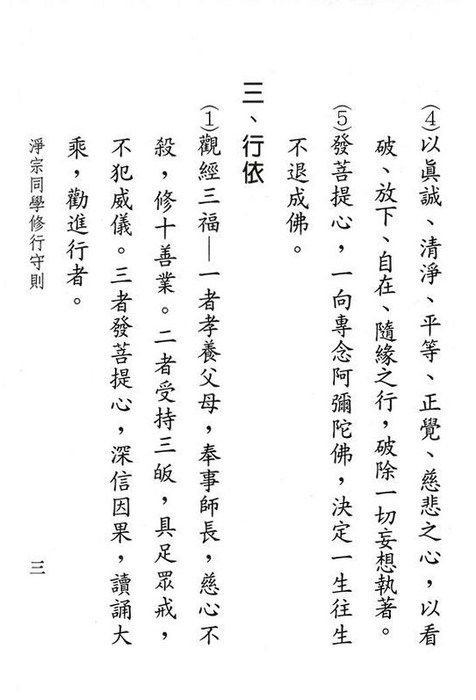 (4)以眞誠、清淨、平等、正覺、慈悲之心，以看
破、放下、自在、隨緣之行，破除一切妄想執著。
(5)發菩提心，一向專念阿彌陀佛，決定一生往生
不退成佛。
三、行依
(1)觀經三福—一者孝養父母，奉事師長，慈心不
殺，修十善業。二者受持三皈，具足眾戒，
不犯威儀。三者發菩提心，深信因果，讀誦大
乘，勸進行者。
淨宗同學修行守則
三